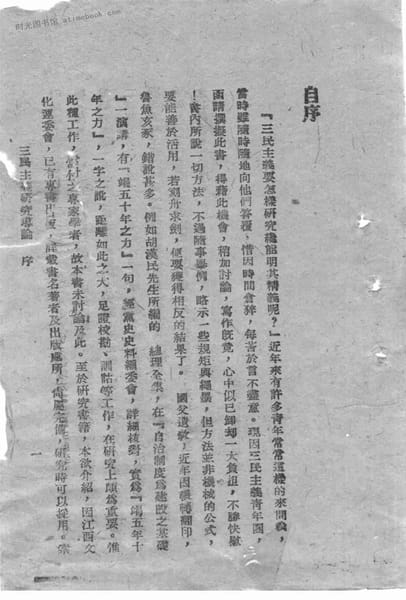 时光图书馆 atimebook.com
自序
『三民主義要怎樣研究纔能明其精義呢？』近年來有許多青年常常這樣的來問我，
當時雖隨時隨地向他們答覆，惜因時間倉猝，每苦於言不盡意。現因三民主義青年團，
函請撰擬此書，得藉此機會，稍加討論，寫作既竟，心中似已卸却一大負担，不勝快慰
！書內所說一切方法，不過隨事舉例，略示一些規矩與繩墨，但方法並非機械的公式，
要能善於活用，若刻舟求劍，便要獲得相反的結果了。 國父遺教，近年因輾轉翻印，
魯魚亥豕，錯說甚多。例如胡漢民先生所編的 總理全集，在『自治制度爲建設之基礎
』一演講，有『竭五十年之力』一句，經黨史史料編委會，詳細核對，實爲『竭五年十
年之力』，一字之訛，距離如此之大，足證校勘、訓詁等工作，在研究上頗爲重要。惟
此種工作，當付之專家學者，故本書未討論及此。至於研究書籍，本欲介紹，因江西文
化運委會，已有專書出版，詳載書名著者及出版處所，尙屬完備，研究時可以採用。
三民主義研究導論 序 一